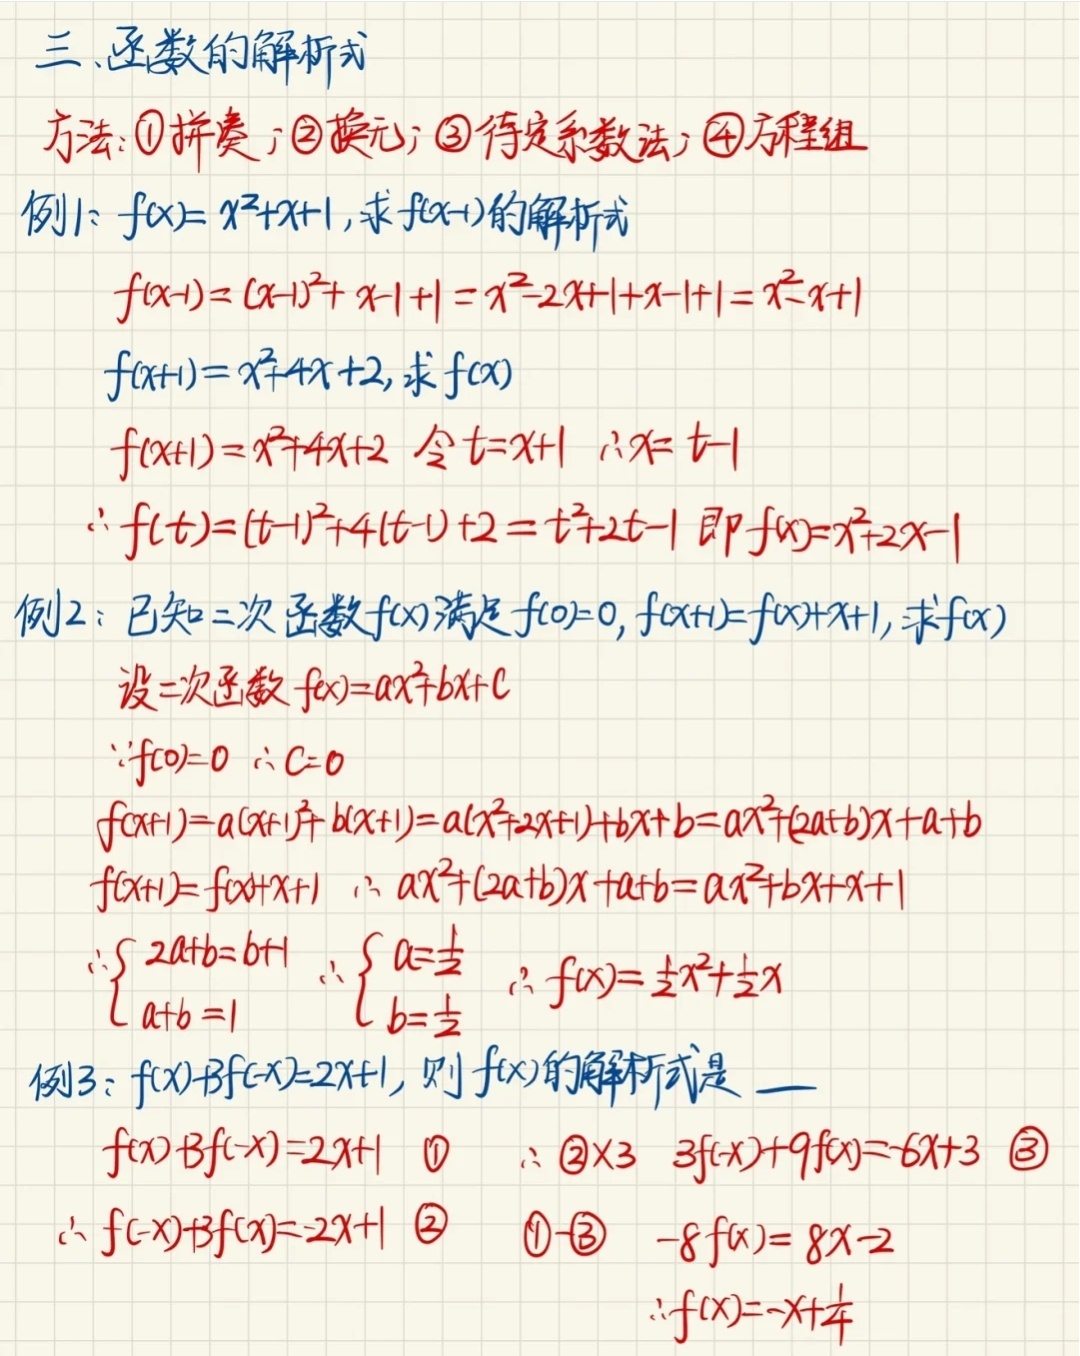 三、函数的解析式
方法:①拼凑;②换元;③待定系数法;④方程组
例1: f(x)=x²+x+1,求f(x-1)的解析式
f(x-1)=(x-1)²+x-1+1=x²-2x+1+x-1+1=x²-x+1
f(x+1)=x²+4x+2,求f(x)
f(x+1)=x²+4x+2 令t=x+1 ∴x=t-1
∴f(t)=(t-1)²+4(t-1)+2=t²+2t-1 即f(x)=x²+2x-1
例2:已知二次函数f(x)满足f(0)=0,f(x+1)=f(x)+x+1,求f(x)
设二次函数f(x)=ax²+bx+c
∵f(0)=0 ∴c=0
f(x+1)=a(x+1)²+b(x+1)=a(x²+2x+1)+bx+b=ax²+(2a+b)x+a+b
f(x+1)=f(x)+x+1 ∴ ax²+(2a+b)x+a+b=ax²+bx+x+1
∴{2a+b=b+1 ∴{a=1/2 ∴f(x)=1/2x²+1/2x
a+b=1 b=1/2
例3:f(x)+3f(-x)=2x+1,则f(x)的解析式是__
f(x)+3f(-x)=2x+1 ① ∴②×3 3f(-x)+9f(x)=-6x+3 ③
∴f(-x)+3f(x)=-2x+1 ② ①-③ -8f(x)=8x-2
∴f(x)=-x+1/4